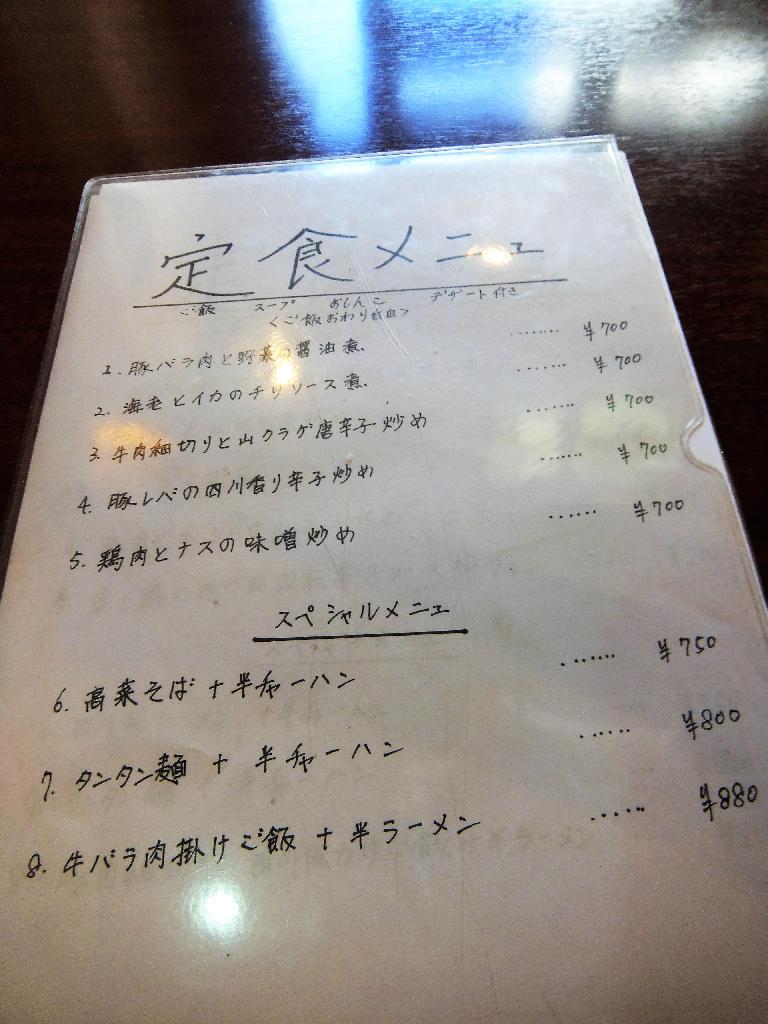 定食メニュー
ご飯 スープ おしんこ デザート付き
<ご飯おかわり自由>
1. 豚バラ肉と野菜の醤油煮 ........ ¥700
2. 海老とイカのチリソース煮 ....... ¥700
3. 牛肉細切りと山クラゲ唐辛子炒め ....... ¥700
4. 豚レバの四川香り辛子炒め ....... ¥700
5. 鶏肉とナスの味噌炒め ...... ¥700
スペシャルメニュー
6. 高菜そば+半チャーハン ....... ¥750
7. タンタン麺 + 半チャーハン ...... ¥800
8. 牛バラ肉掛けご飯 + 半ラーメン ...... ¥880